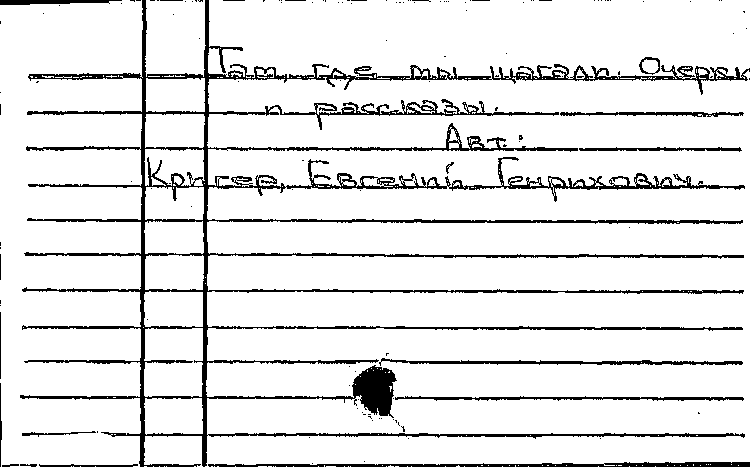 Там, где мы шагали. Очерки
и рассказы.
Авт:
Кригер, Евгений Генрихович.